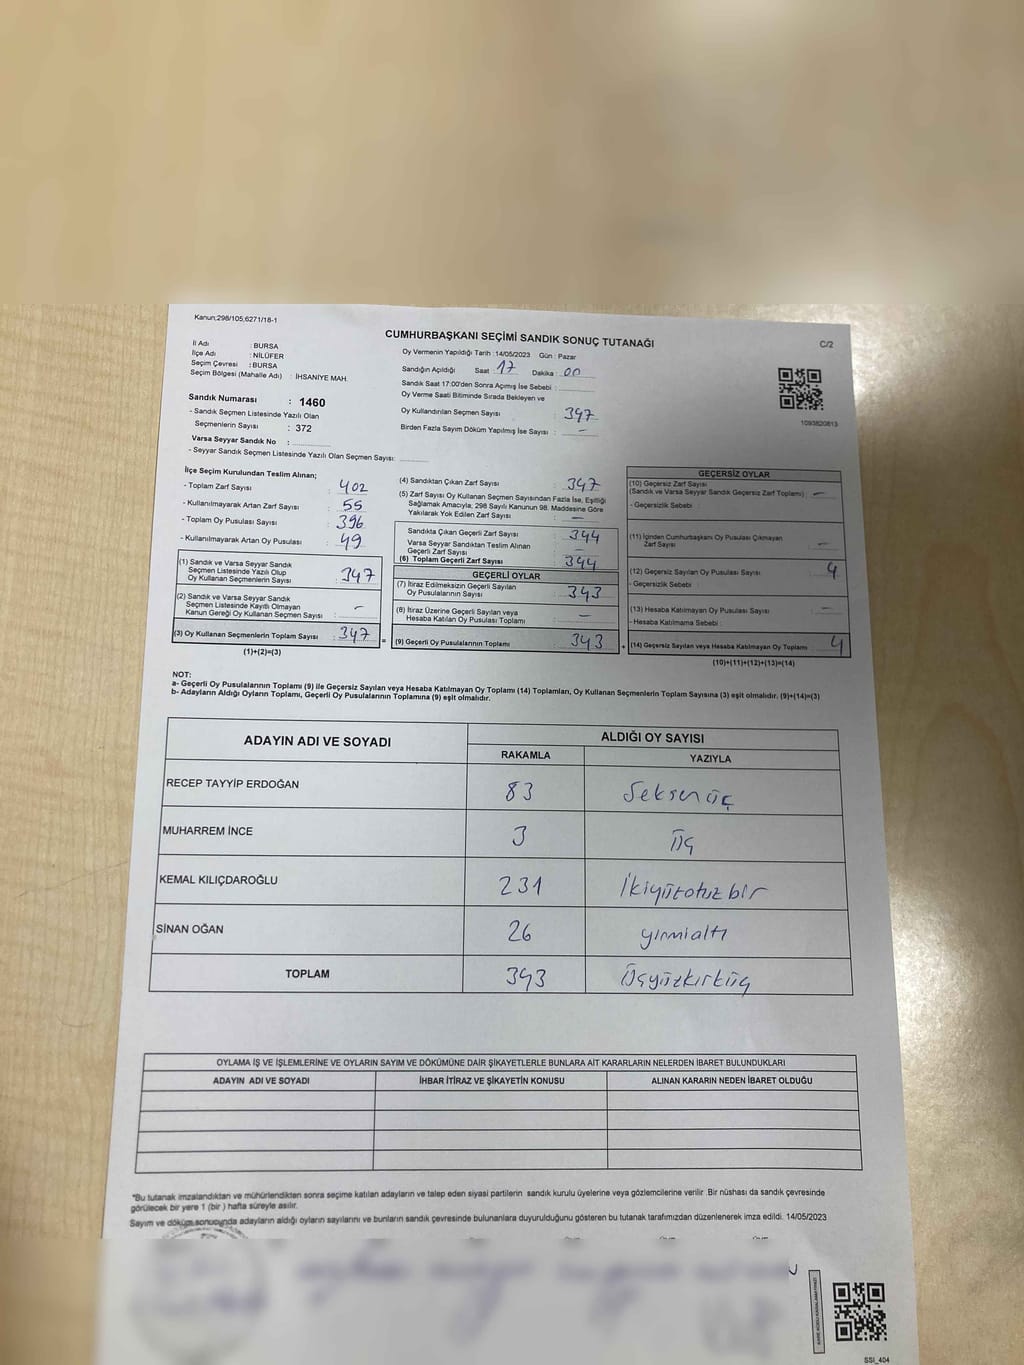 Kanun;298/105,6271/18-1
CUMHURBAŞKANI SEÇİMİ SANDIK SONUÇ TUTANAĞI
C/2
İl Adı : BURSA
İlçe Adı : NİLÜFER
Seçim Çevresi : BURSA
Seçim Bölgesi (Mahalle Adı) : İHSANİYE MAH.
Sandık Numarası : 1460
- Sandık Seçmen Listesinde Yazılı Olan
Seçmenlerin Sayısı : 372
Varsa Seyyar Sandık No :
- Seyyar Sandık Seçmen Listesinde Yazılı Olan Seçmen Sayısı:
Oy Vermenin Yapıldığı Tarih :14/05/2023 Gün : Pazar
Sandığın Açıldığı Saat : 17 Dakika : 00
Sandık Saat 17:00'den Sonra Açımış İse Sebebi :
Oy Verme Saati Bitiminde Sırada Bekleyen ve
Oy Kullandırılan Seçmen Sayısı : 347
Birden Fazla Sayım Döküm Yapılmış İse Sayısı : -
1093820813
İlçe Seçim Kurulundan Teslim Alınan;
- Toplam Zarf Sayısı : 402
- Kullanılmayarak Artan Zarf Sayısı : 55
- Toplam Oy Pusulası Sayısı : 396
- Kullanılmayarak Artan Oy Pusulası : 49
(1) Sandık ve Varsa Seyyar Sandık
Seçmen Listesinde Yazılı Olup
Oy Kullanan Seçmenlerin Sayısı : 347
(2) Sandık ve Varsa Seyyar Sandık
Seçmen Listesinde Kayıtlı Olmayan
Kanun Gereği Oy Kullanan Seçmen Sayısı : -
(3) Oy Kullanan Seçmenlerin Toplam Sayısı : 347
(1)+(2)=(3)
(4) Sandıktan Çıkan Zarf Sayısı : 347
(5) Zarf Sayısı Oy Kullanan Seçmen Sayısından Fazla İse, Eşitliği
Sağlamak Amacıyla; 298 Sayılı Kanunun 98. Maddesine Göre
Yakılarak Yok Edilen Zarf Sayısı : -
Sandıkta Çıkan Geçerli Zarf Sayısı : 344
Varsa Seyyar Sandıktan Teslim Alınan
Geçerli Zarf Sayısı : -
(6) Toplam Geçerli Zarf Sayısı : 344
GEÇERLİ OYLAR
(7) İtiraz Edilmeksizin Geçerli Sayılan
Oy Pusulalarının Sayısı : 343
(8) İtiraz Üzerine Geçerli Sayılan veya
Hesaba Katılan Oy Pusulası Toplamı : -
= (9) Geçerli Oy Pusulalarının Toplamı : 343
GEÇERSİZ OYLAR
(10) Geçersiz Zarf Sayısı
(Sandık ve Varsa Seyyar Sandık Geçersiz Zarf Toplamı) : -
- Geçersizlik Sebebi :
(11) İçinden Cumhurbaşkanı Oy Pusulası Çıkmayan
Zarf Sayısı : -
(12) Geçersiz Sayılan Oy Pusulası Sayısı : 4
- Geçersizlik Sebebi :
(13) Hesaba Katılmayan Oy Pusulası Sayısı : -
- Hesaba Katılmama Sebebi :
+ (14) Geçersiz Sayılan veya Hesaba Katılmayan Oy Toplamı : 4
(10)+(11)+(12)+(13)=(14)
NOT:
a- Geçerli Oy Pusulalarının Toplamı (9) ile Geçersiz Sayılan veya Hesaba Katılmayan Oy Toplamı (14) Toplamları, Oy Kullanan Seçmenlerin Toplam Sayısına (3) eşit olmalıdır. (9)+(14)=(3)
b- Adayların Aldığı Oyların Toplamı, Geçerli Oy Pusulalarının Toplamına (9) eşit olmalıdır.
ADAYIN ADI VE SOYADI ALDIĞI OY SAYISI
RAKAMLA YAZIYLA
RECEP TAYYİP ERDOĞAN 83 Seksenüç
MUHARREM İNCE 3 Üç
KEMAL KILIÇDAROĞLU 231 İkiyüzotuzbir
SİNAN OĞAN 26 yirmialtı
TOPLAM 343 Üçyüzkırküç
OYLAMA İŞ VE İŞLEMLERİNE VE OYLARIN SAYIM VE DÖKÜMÜNE DAİR ŞİKAYETLERLE BUNLARA AİT KARARLARIN NELERDEN İBARET BULUNDUKLARI
ADAYIN ADI VE SOYADI İHBAR İTİRAZ VE ŞİKAYETİN KONUSU ALINAN KARARIN NEDEN İBARET OLDUĞU
*Bu tutanak imzalandıktan ve mühürlendikten sonra seçime katılan adayların ve talep eden siyasi partilerin sandık kurulu üyelerine veya gözlemcilerine verilir .Bir nüshası da sandık çevresinde
görülecek bir yere 1 (bir ) hafta süreyle asılır.
Sayım ve döküm sonucunda adayların aldığı oyların sayılarını ve bunların sandık çevresinde bulunanlara duyurulduğunu gösteren bu tutanak tarafımızdan düzenlenerek imza edildi. 14/05/2023
SSI_404